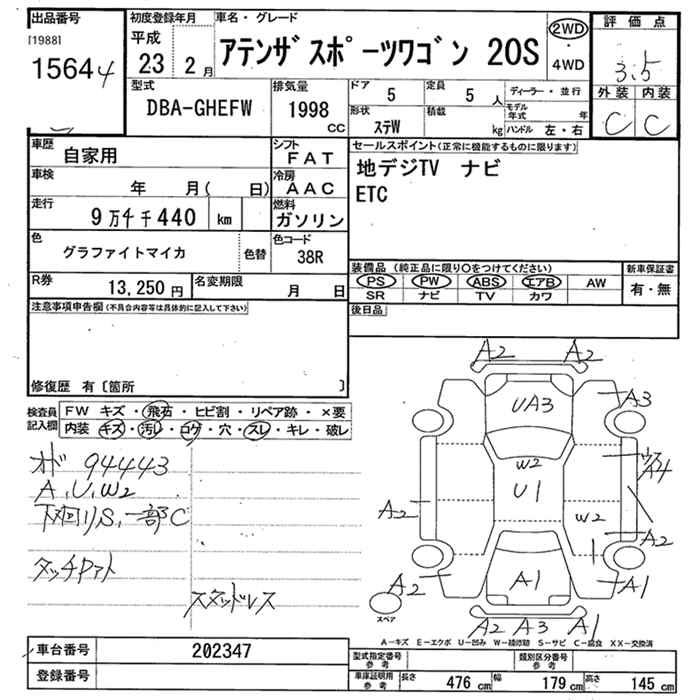 出品番号 初度登録年月 車名・グレード 評価点
[1988]
15644
平成 23 2月
アテンザスポーツワゴン 20S
2WD・4WD
3.5
外装 内装
C C
型式
DBA-GHEFW
排気量
1998 CC
ドア 5
定員 5人
ディーラー・並行
形状 ステW
積載 kg
モデル年式 年
ハンドル 左・右
車歴 自家用
シフト FAT
車検 年 月( 日)
冷房 AAC
走行 9万4千440 km
燃料 ガソリン
色 グラファイトマイカ 色替
色コード 38R
R券 13,250円
名変期限 月 日
セールスポイント(正常に機能するものに限ります)
地デジTV ナビ
ETC
装備品(純正品に限り○をつけてください) 新車保証書
PS PW ABS エアB AW 有・無
SR ナビ TV カワ
後日品
注意事項申告欄(不具合内容等は具体的に記入して下さい)
修復歴 有〔箇所 〕
検査員記入欄
FW キズ・飛石・ヒビ割・リペア跡・×要
内装 キズ・汚レ・コゲ・穴・スレ・キレ・破レ
オド 94443
A、U、W2
下廻りS、一部C
タッチPアト
スタッドレス
A2 A2
UA3
A3
W2
U1
A4
A2
W2
A2
A2
A1
A1
スペア
A2 A3 A1
A-キズ E-エクボ U-凹み W-補修跡 S-サビ C-腐食 XX-交換済
車台番号 202347
登録番号
型式指定番号 参考
類別区分番号 参考
車庫証明用 参考 長さ 476cm 幅 179cm 高さ 145cm